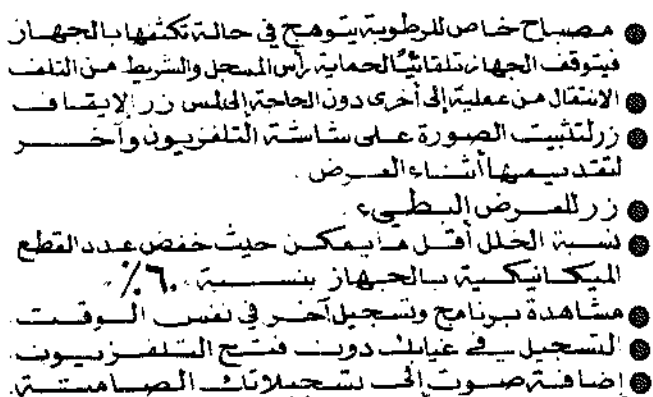 ● مصباح خاص للرطوبة يتوهج في حالة تكثفها بالجهاز
فيتوقف الجهاز تلقائيًا لحماية رأس المسجل والشريط من التلف
● الانتقال من عملية إلى أخرى دون الحاجة إلى لمس زر الايقاف
● زر لتثبيت الصورة على شاشة التلفزيون وآخر
لتقديمها أثناء العرض.
● زر للعرض البطيء.
● نسبة الخلل أقل ما يمكن حيث خفض عدد القطع
الميكانيكية بالجهاز بنسبة ٦٠٪.
● مشاهدة برنامج وتسجيل آخر في نفس الوقت.
● التسجيل في غيابك دون فتح التلفزيون.
● إضافة صوت إلى تسجيلاتك الصامتة.